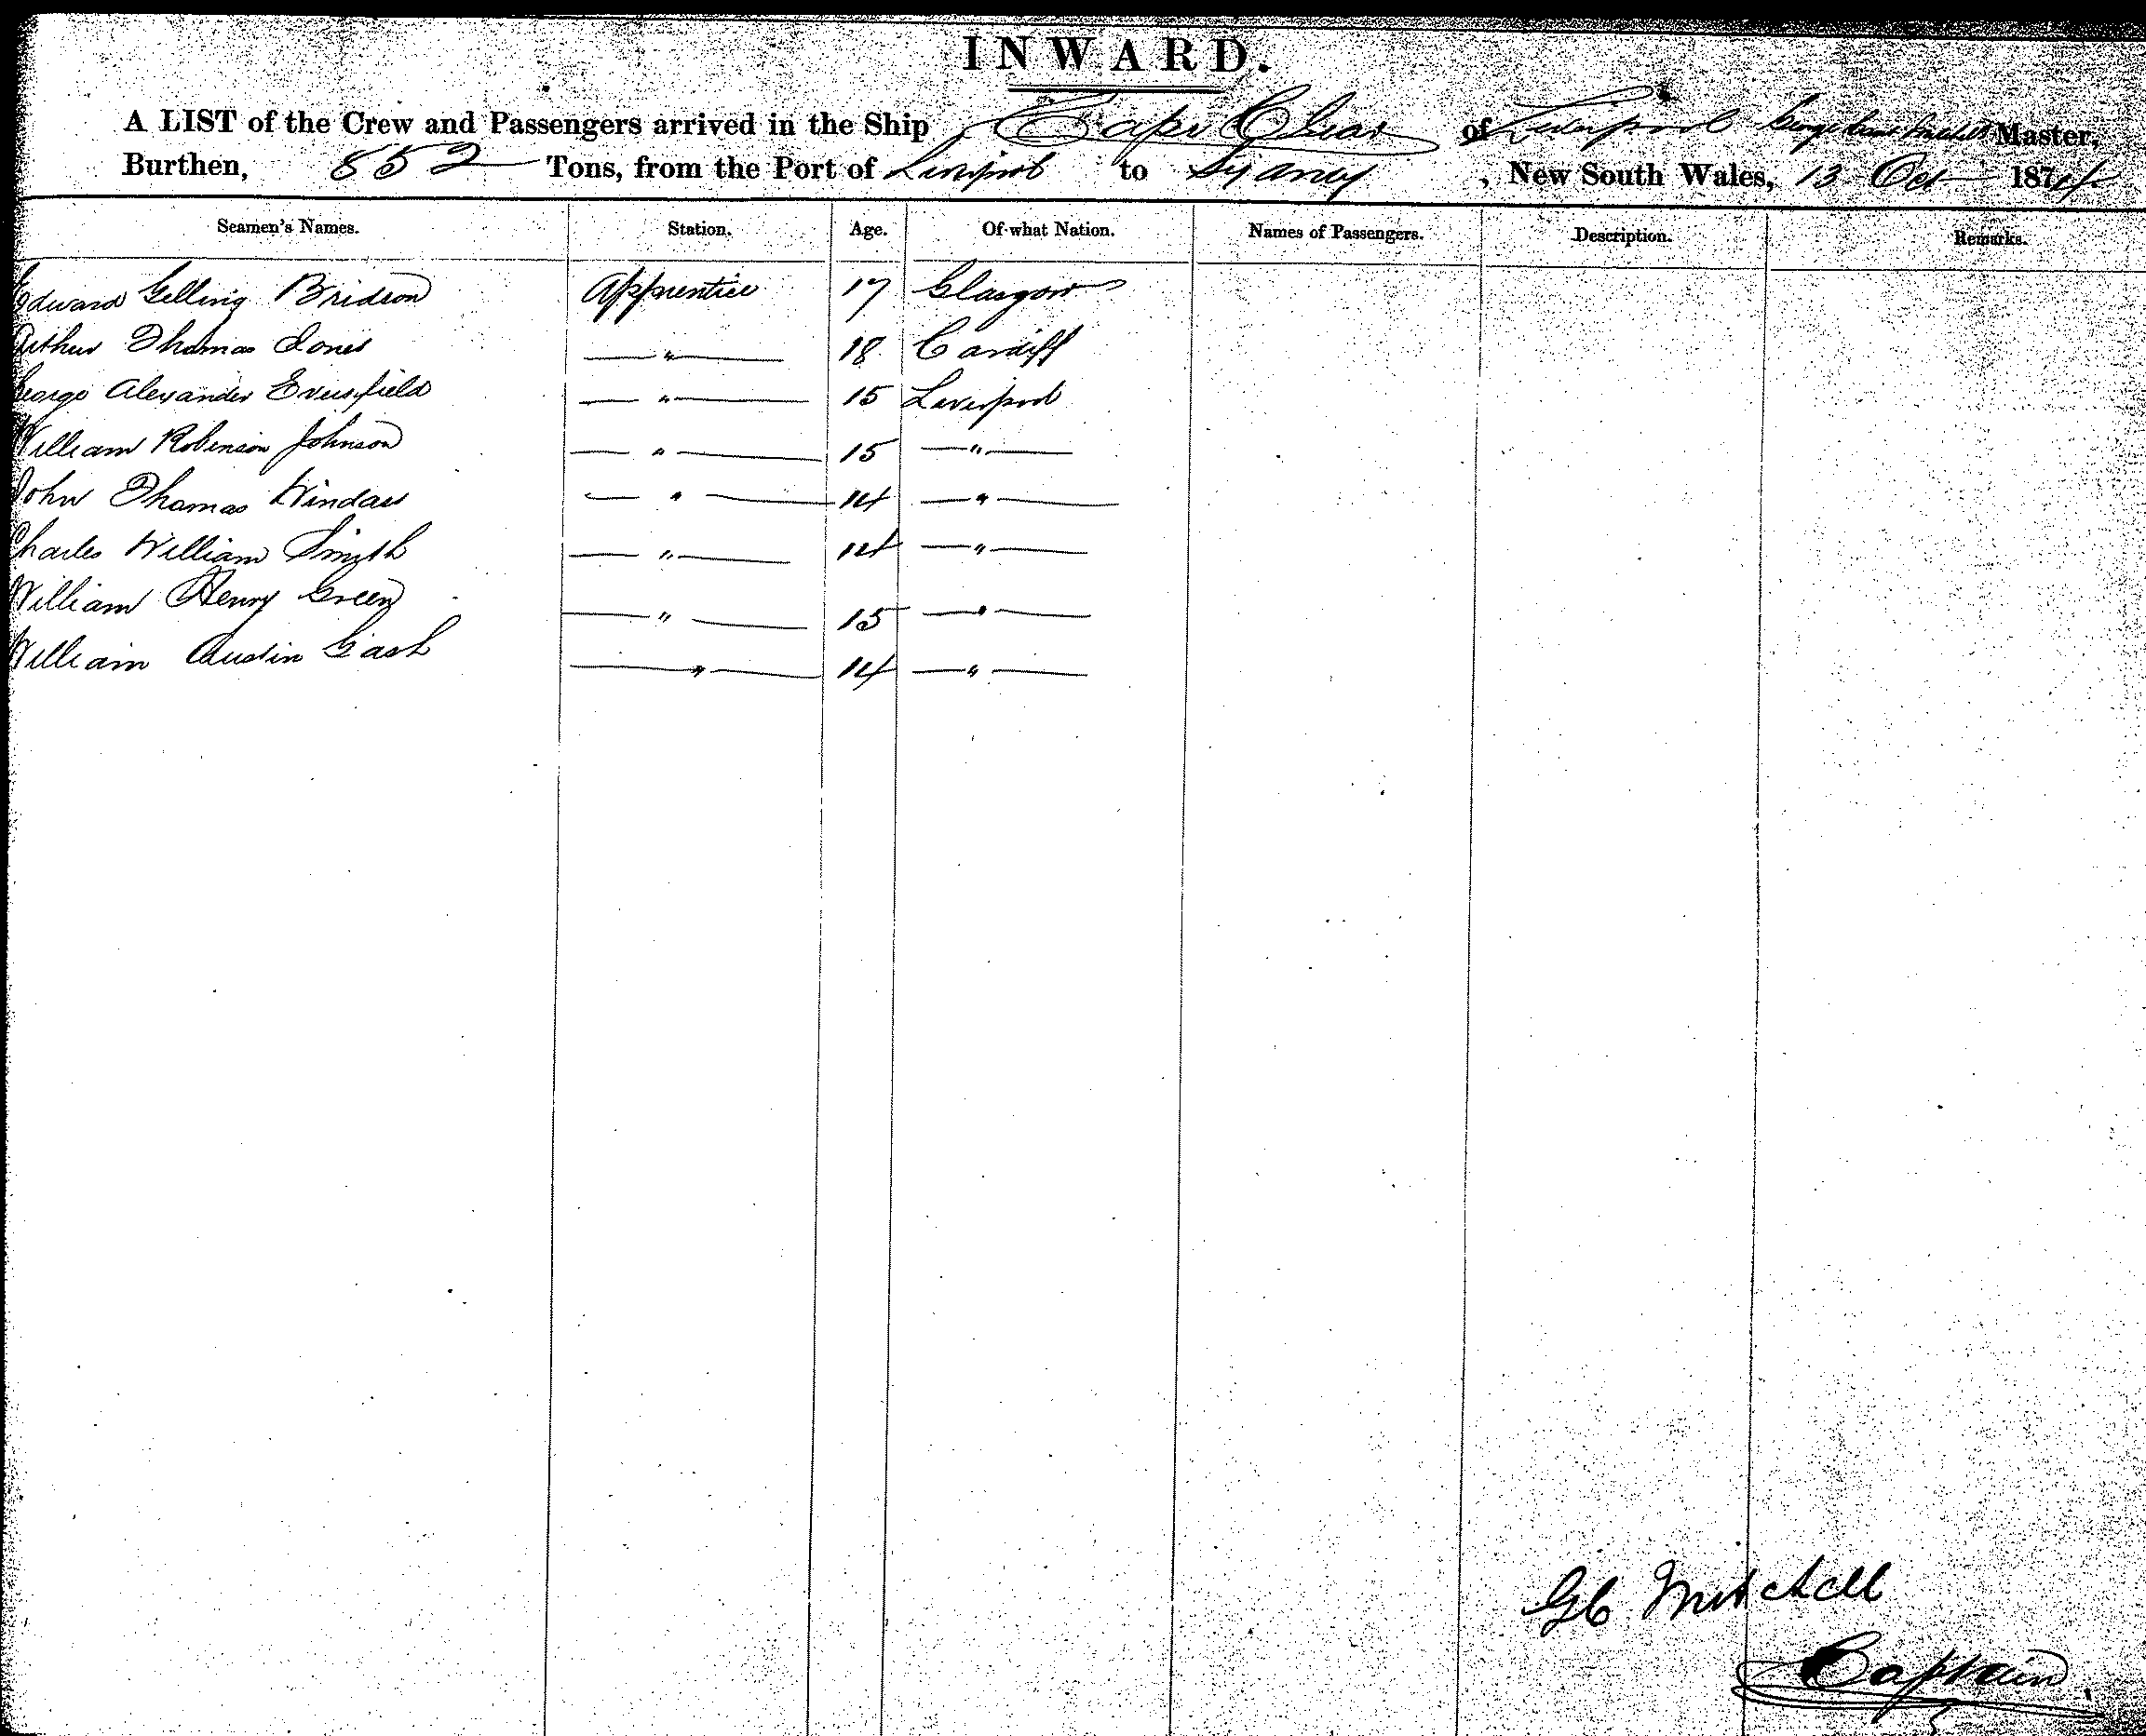 INWARD.
A LIST of the Crew and Passengers arrived in the Ship Cape Clear of Liverpool George Mitchell Master,
Burthen, 852 Tons, from the Port of Liverpool to Sydney, New South Wales, 13 Oct 1874
Seamen's Names. Station. Age. Of what Nation. Names of Passengers. Description. Remarks.
Edward Gelling Bridson Apprentice 17 Glasgow
Arthur Thomas Jones — " — 18 Cardiff
George Alexander Eversfield — " — 15 Liverpool
William Robinson Johnson — " — 15 — " —
John Thomas Windass — " — 14 — " —
Charles William Smith — " — 14 — " —
William Henry Green — " — 15 — " —
William Austin Gash — " — 14 — " —
GC Mitchell
Captain